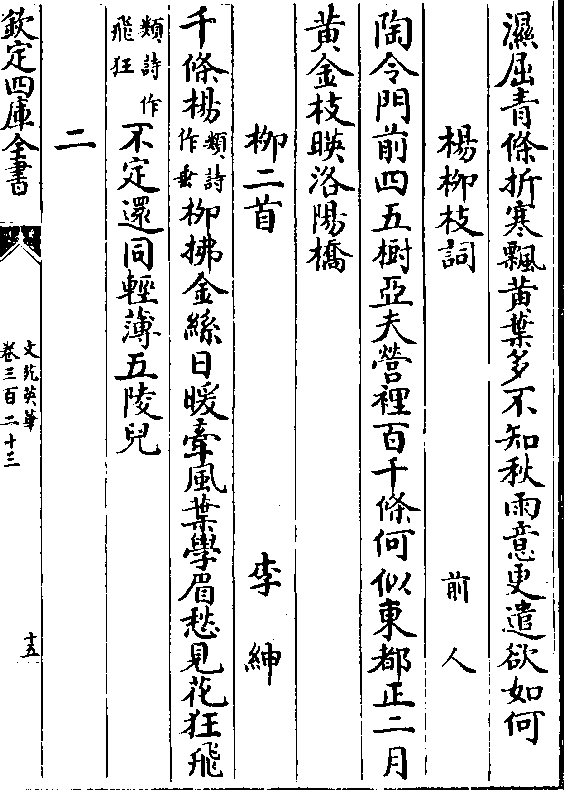 濕屈青條折寒飄黄葉多不知秋雨意更遣欲如何
楊柳枝詞 前人
陶令門前四五樹亞夫營裡百千條何似東都正二月
黄金枝暎洛陽橋
柳二首 李紳
千條楊類詩作垂柳拂金絲日暖牽風葉學眉愁見花狂飛
類詩作飛狂不定還同輕薄五陵兒
二
欽定四庫全書
文苑英華
卷三百二十三
十五